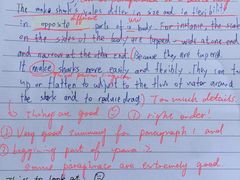 The mako shark's scales differ in size and in flexibility
different
in opposite parts of a body. For instance, the scales
on the sides of the body are tapered - wide at one end
and narrow at the other end. Because they are tapered
make sharks more easily and flexibly. They can turn
up or flatten to adjust to the flow of water around
the shark and to reduce drag. Too much details.
Things are good ☺ ① right order!
① Very good summary for paragraph 1 and
② beginning part of para 2.
Some paraphrase are extremely good.